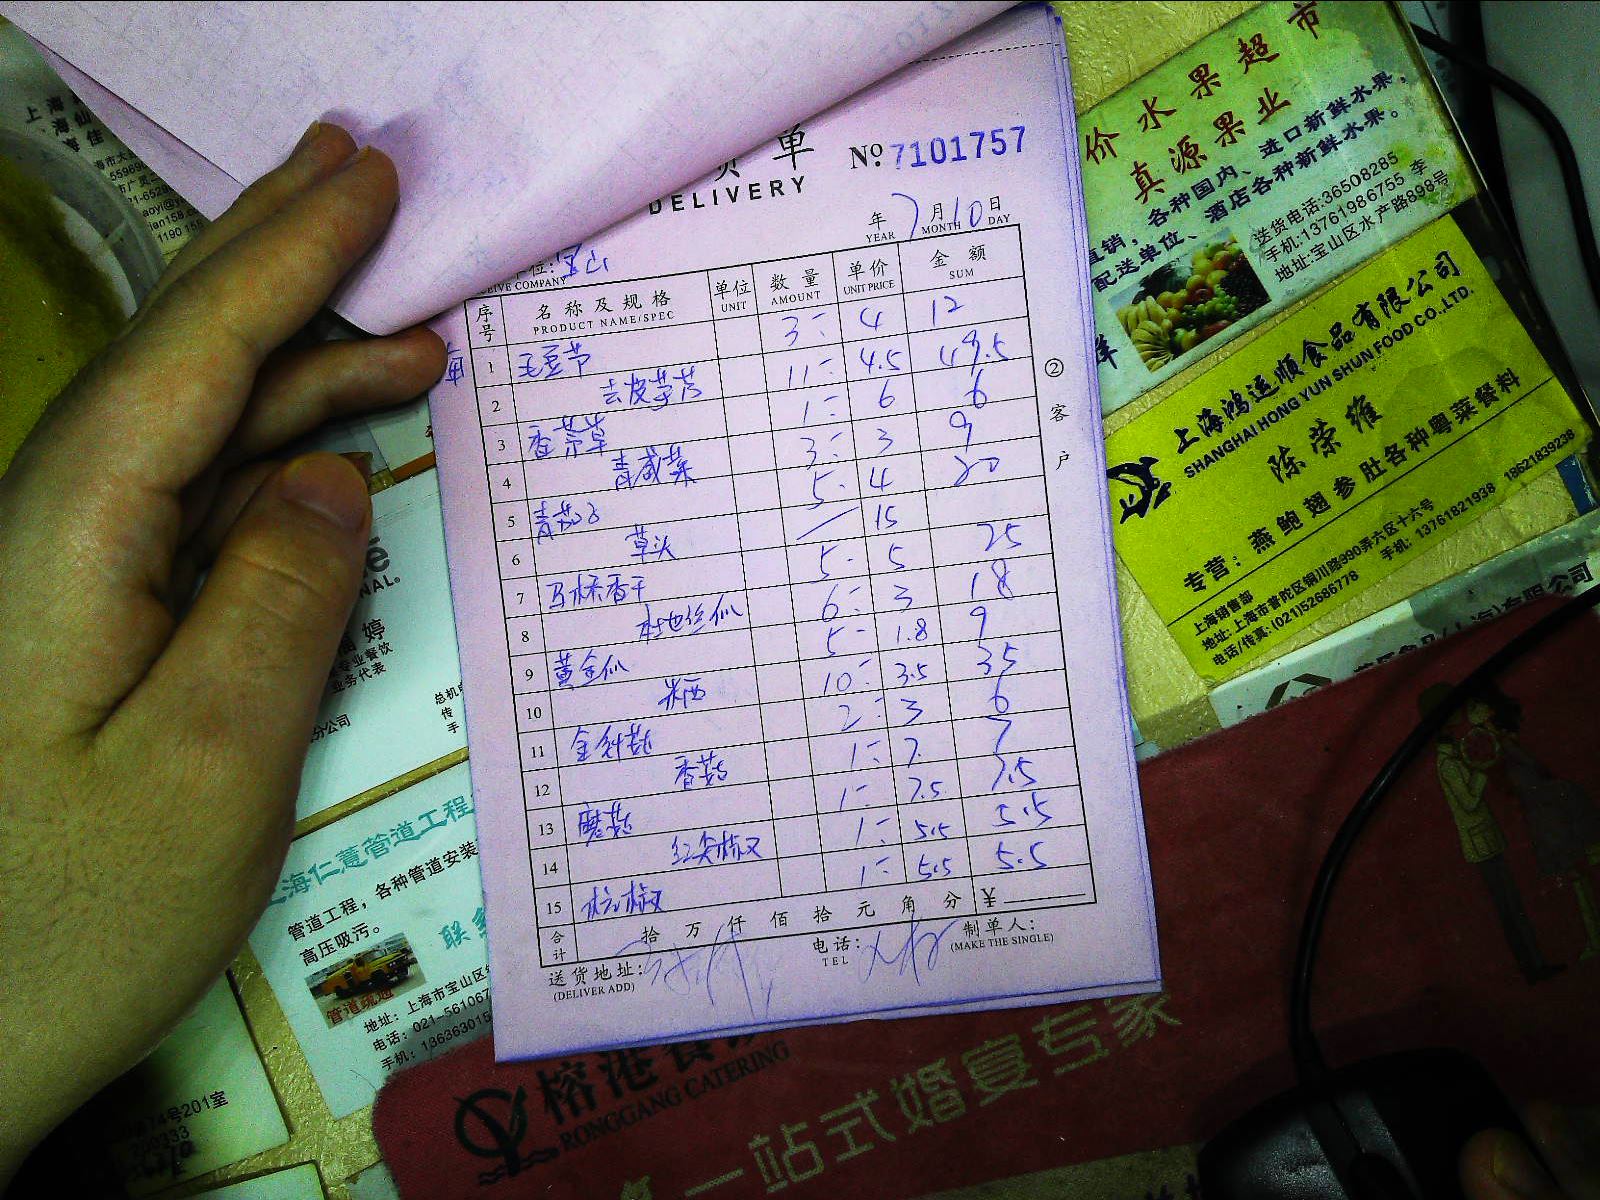 货单
DELIVERY
No. 7101757
年 7 月 10 日
YEAR MONTH DAY
位: 宝山
CEIVE COMPANY
序号 名称及规格 单位 数量 单价 金额
PRODUCT NAME/SPEC UNIT AMOUNT UNIT PRICE SUM
1 毛豆节 3 4 12
2 去皮芋艿 11 4.5 49.5
3 香菜草 1 6 6
4 青咸菜 3 3 9
5 青茄子 5 4 20
6 草头 15
7 马桥香干 5 5 25
8 本地丝瓜 6 3 18
9 黄金瓜 5 1.8 9
10 水西 10 3.5 35
11 金针菇 2 3 6
12 香菇 1 7 7
13 蘑菇 1 7.5 7.5
14 红尖椒 1 5.5 5.5
15 杭椒 1 5.5 5.5
合计 拾 万 仟 佰 拾 元 角 分 ¥
送货地址:
(DELIVER ADD)
电话:
TEL
制单人:
(MAKE THE SINGLE)
②客户
价水果超市
真源果业
直销，各种国内、进口新鲜水果，
配送单位、酒店各种新鲜水果。
送货电话:36508285
手机:13761986755 李
地址:宝山区水产路898号
上海鸿运顺食品有限公司
SHANGHAI HONG YUN SHUN FOOD CO.,LTD.
陈荣维
专营：燕鲍翅参肚各种粤菜餐料
上海销售部
地址: 上海市普陀区铜川路990弄六区十六号
电话/传真: (021)52686778 手机: 13761821938 18621839238
婷
专业餐饮
业务代表
总机
传
手
分公司
上海仁薏管道工程
管道工程，各种管道安装
高压吸污。
联系
管道疏通
地址: 上海市宝山区
电话: 021-56106
手机: 13636301
74号201室
200333
榕港餐饮
RONGGANG CATERING
一站式婚宴专家